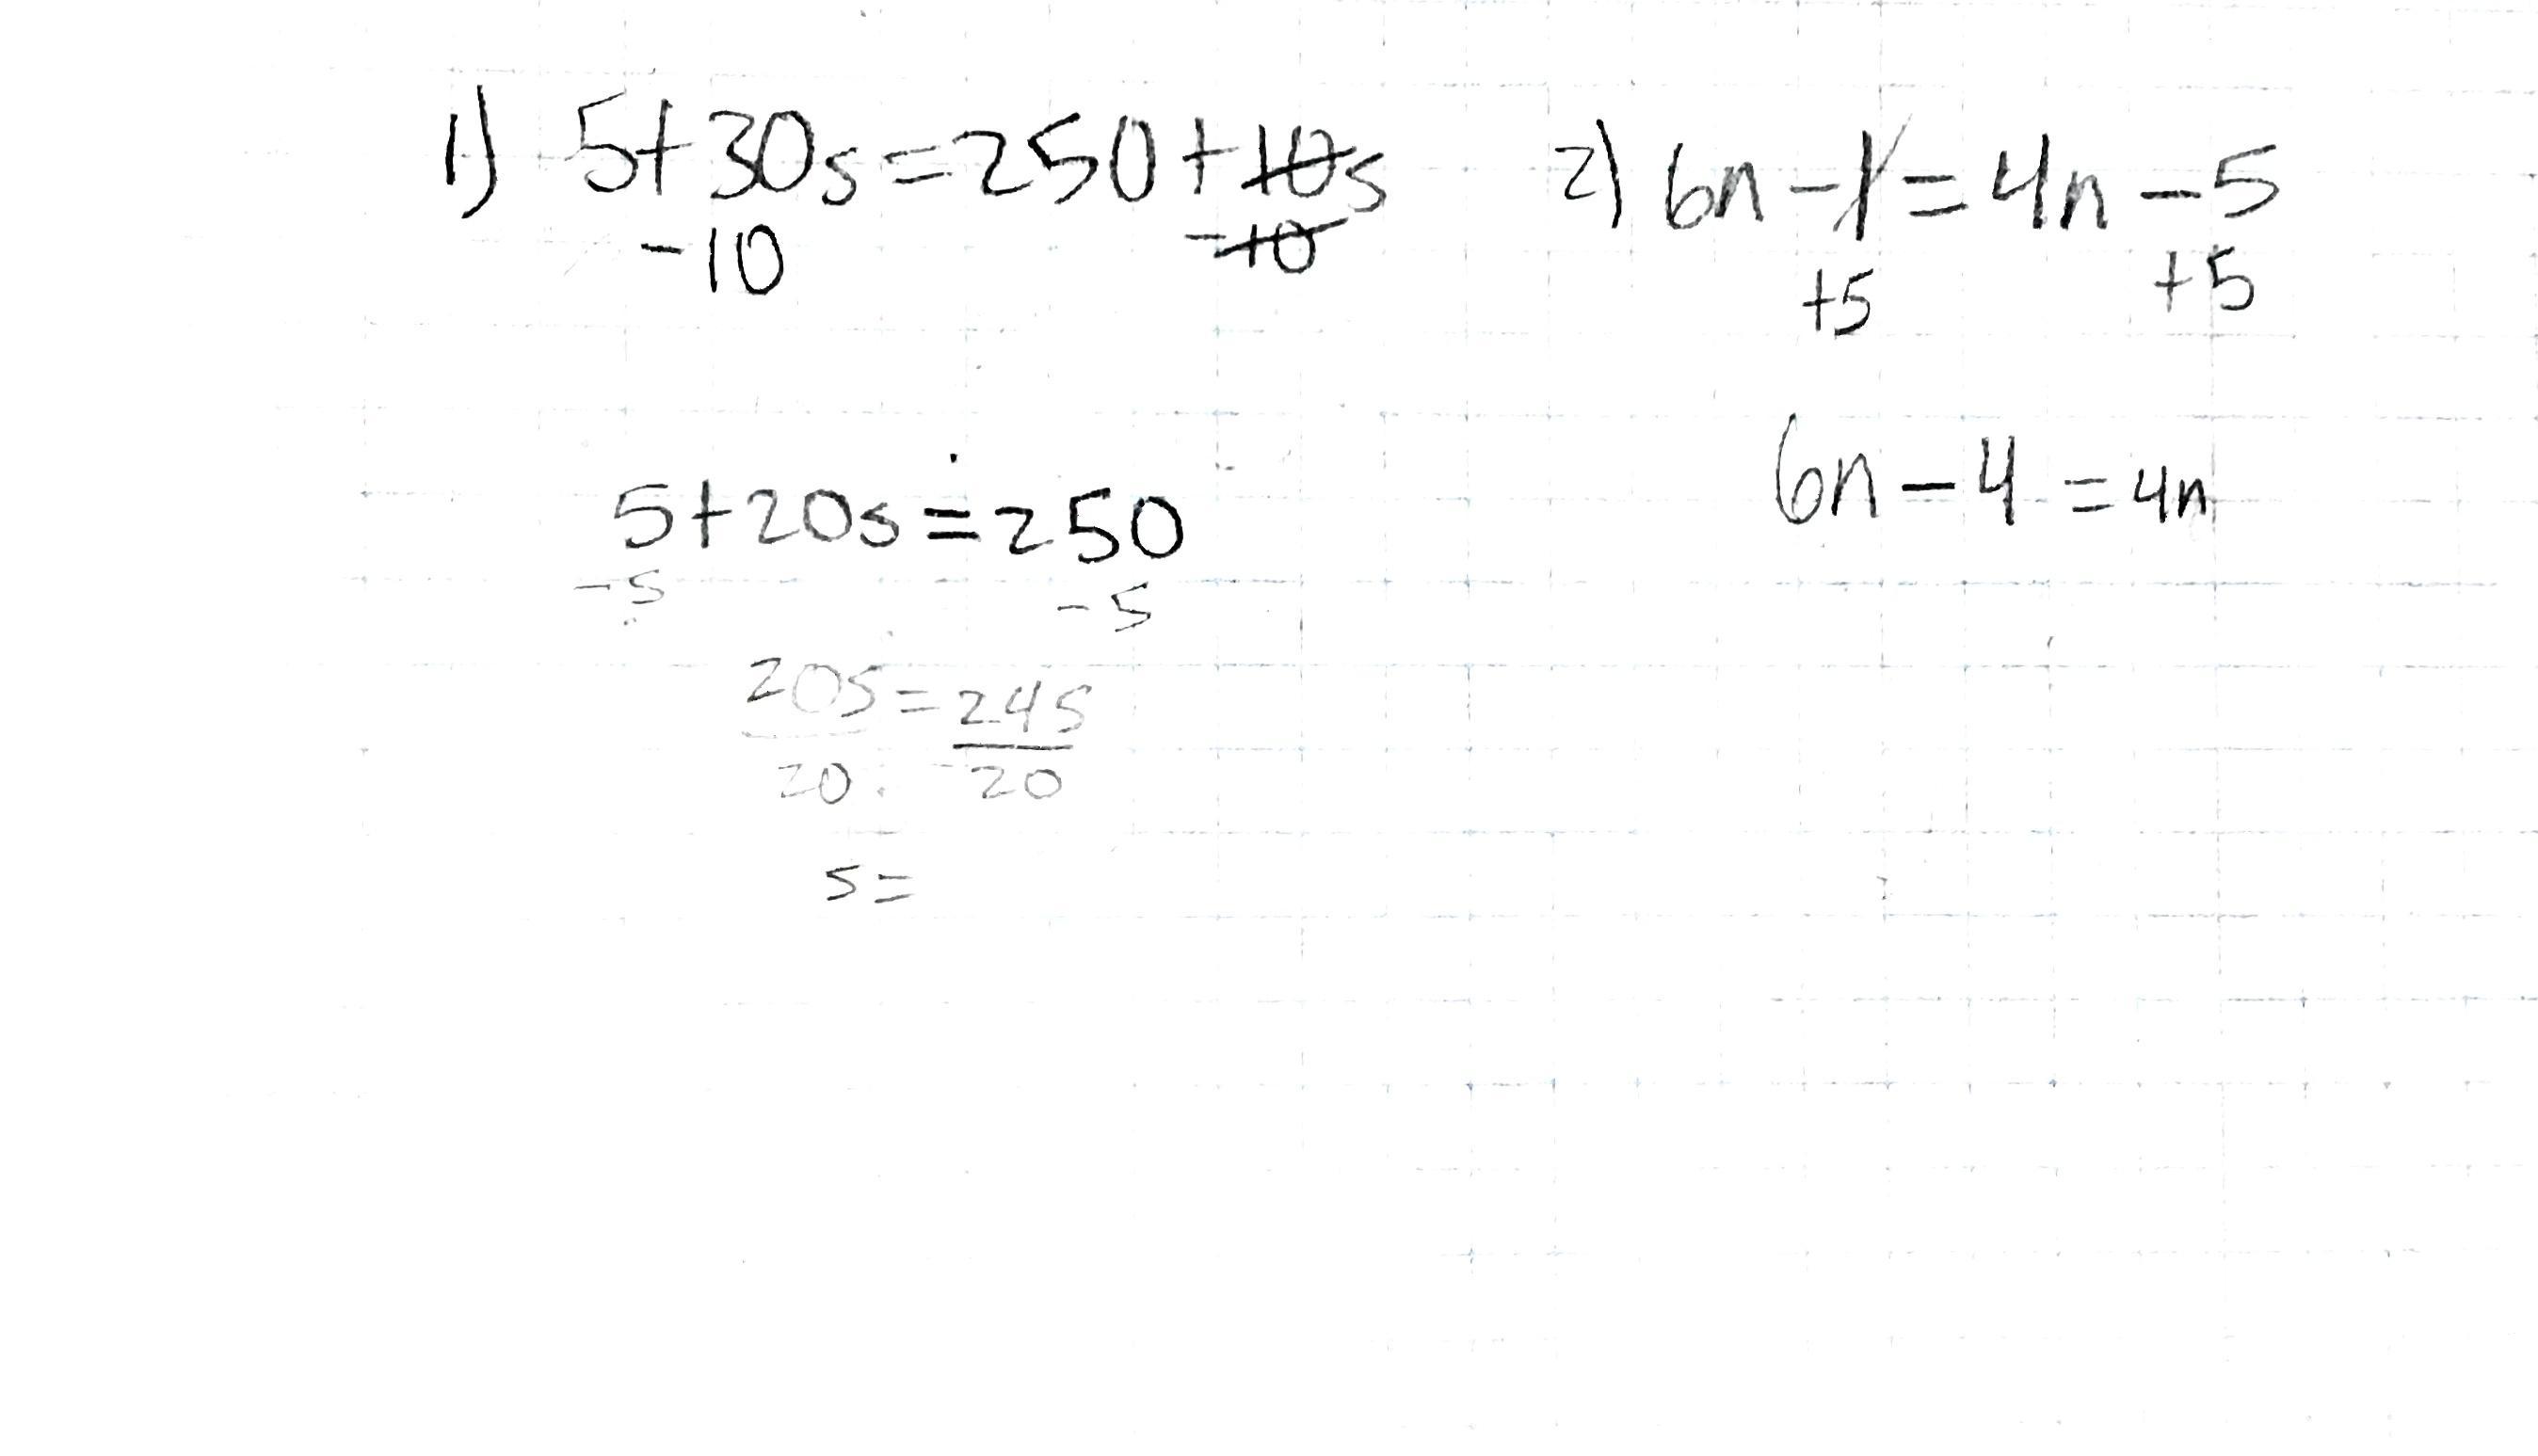 1) 5+30s=250+10s
-10 -10
5+20s=250
-5 -5
20s=245
20 20
s=
2) 6n-1=4n-5
+5 +5
6n-4=4n